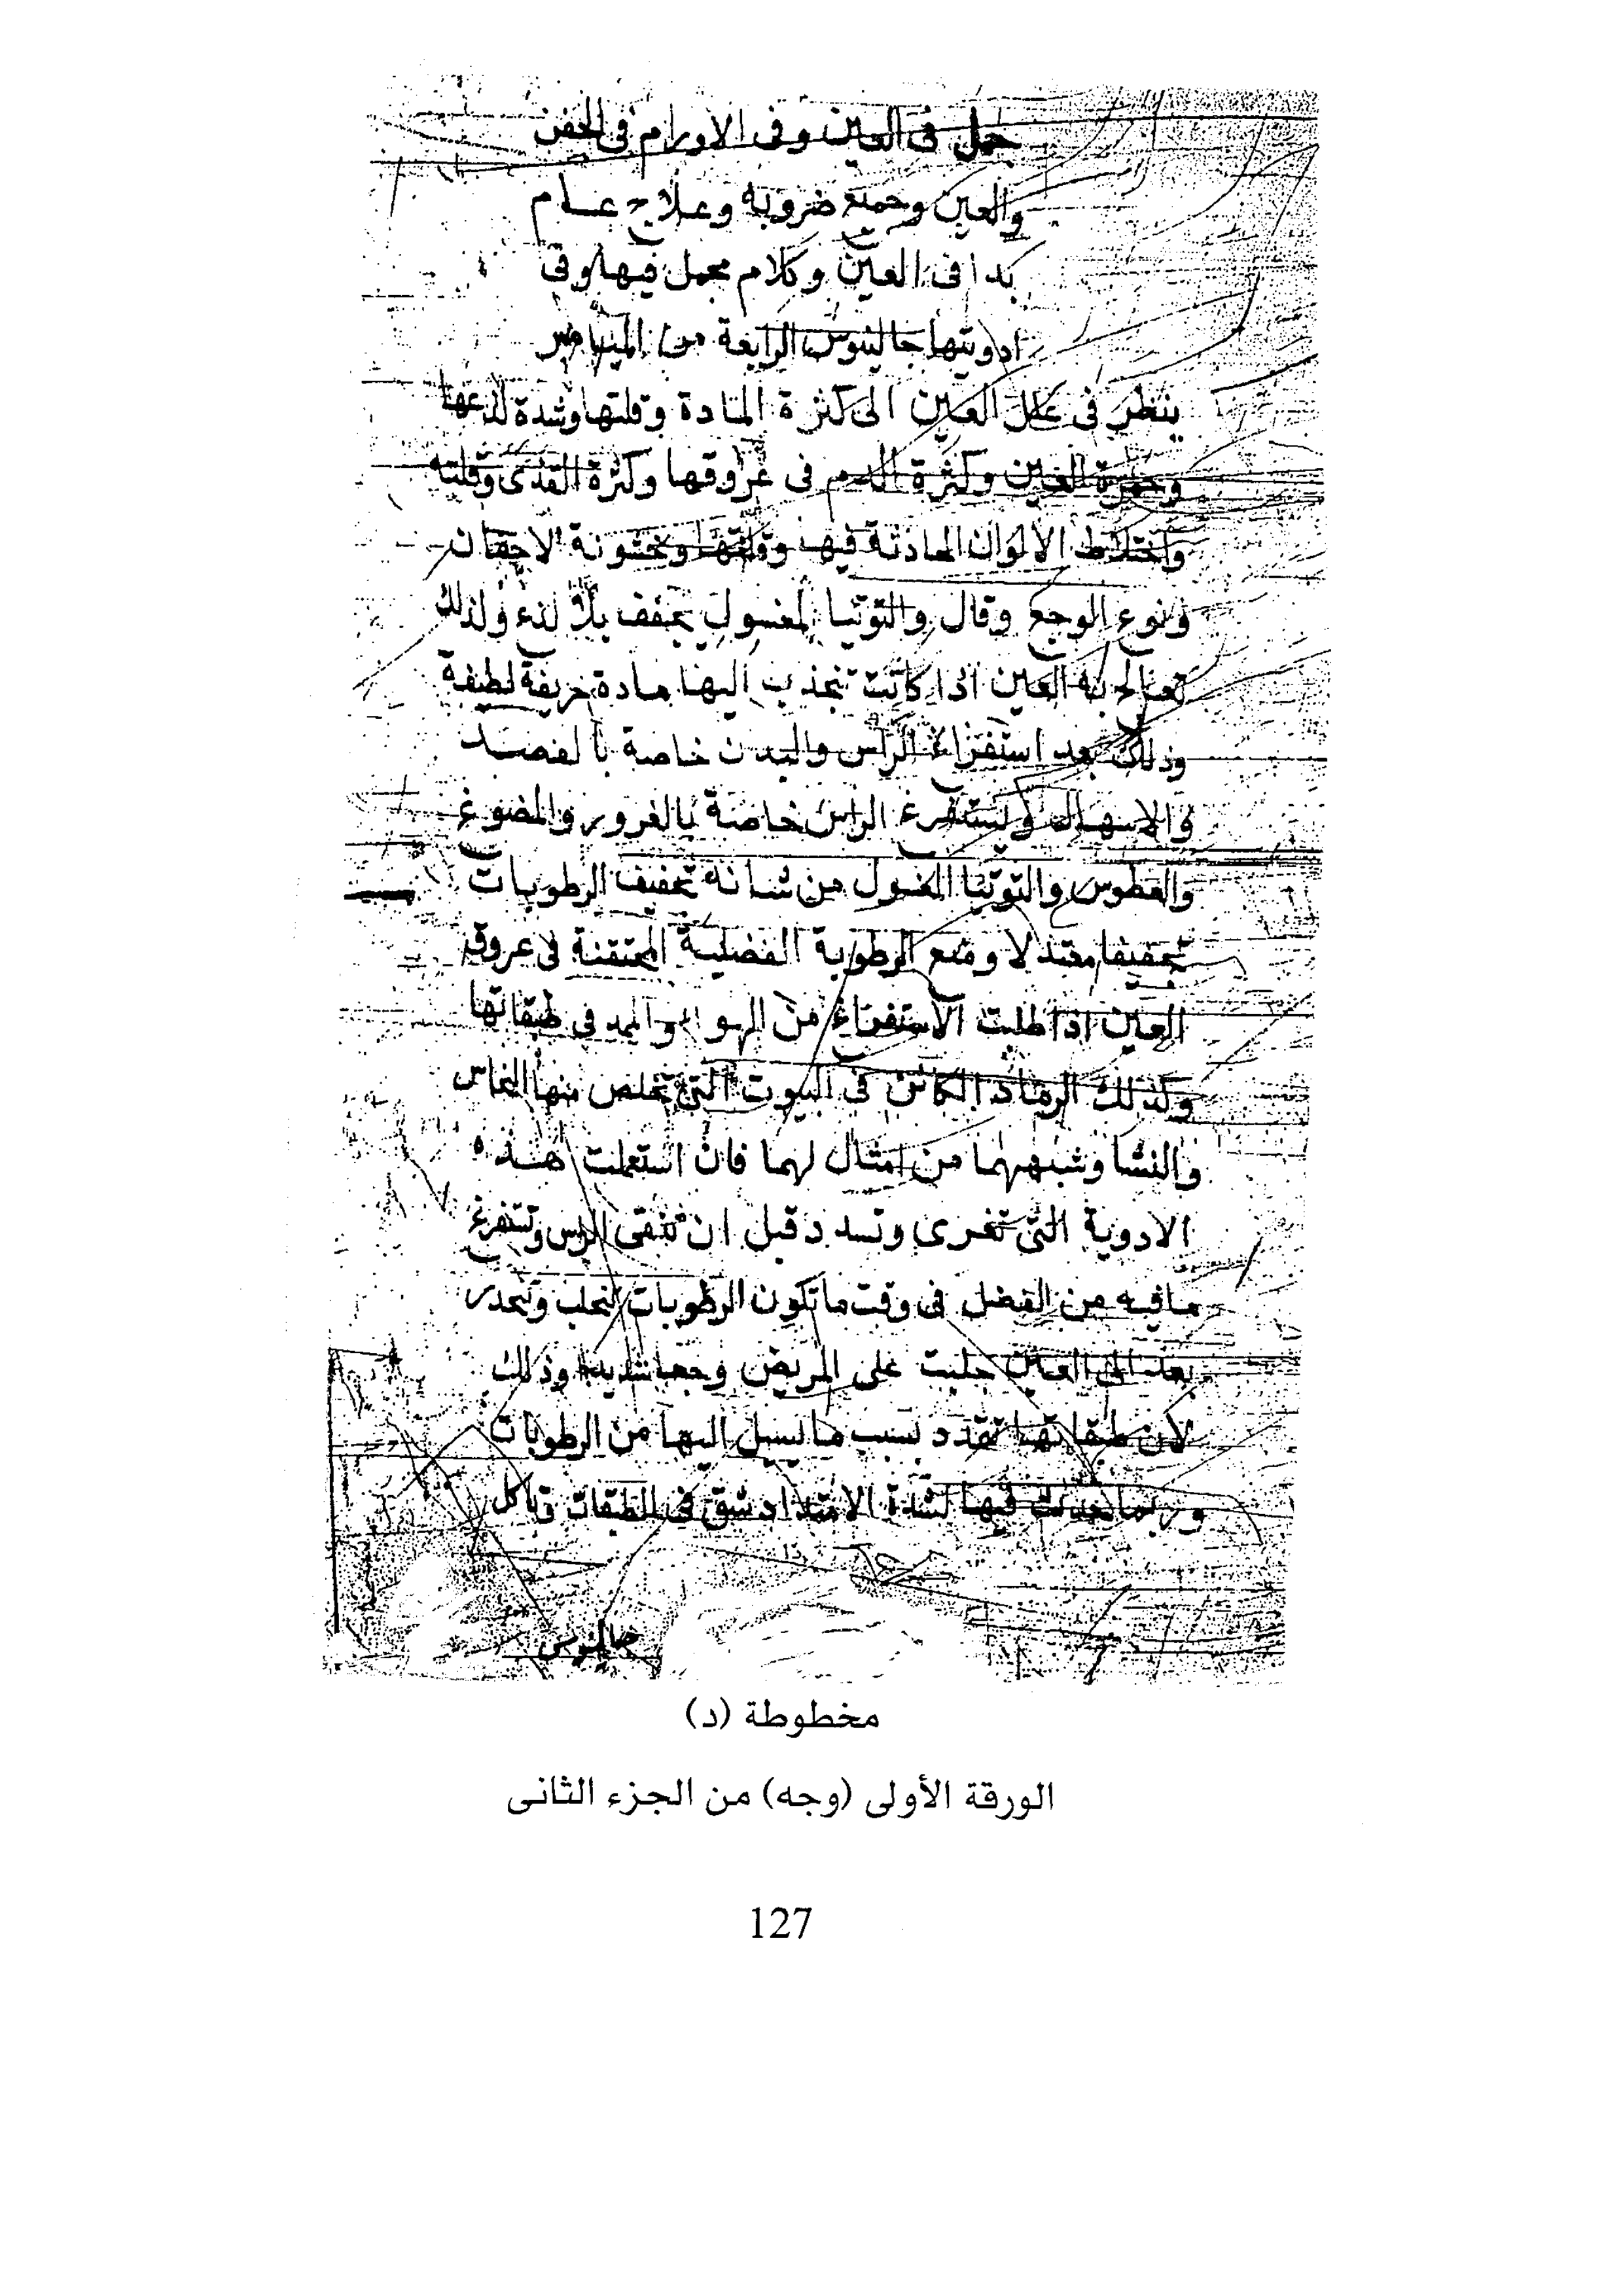 جمل فى العين وفى الاورام فى الجفن
والعين وجميع ضروبه وعلاج عام
بدا فى العين وكلام مجمل فيها وفى
ادويتها جالينوس الرابعة من الميامر
ينظر فى علل العين الى كثرة المادة وقلتها وشدة لذعها
وحمرة العين وكثرة الدم فى عروقها وكثرة القذى وقلته
واختلاط الالوان الحادثة فيها وقلتها وخشونة الاجفان
ونوع الوجع وقال والتوتيا المغسول يجفف بلا لذع ولذلك
تعالج به العين اذا كانت تنجذب اليها مادة حريفة لطيفة
وذلك بعد استفراغ الراس والبدن خاصة بالفصد
والاسهال ويستفرغ الراس خاصة بالغرور والمضوغ
والعطوس والتوتيا المغسول من شانه تجفيف الرطوبات
تجفيفا معتدلا ومنع الرطوبة الفضلية المحتقنة فى عروق
العين اذا طلبت الاستفراغ من فى طبقاتها
وكذلك الرماد الكائن فى البيوت التى تخلص منها النحاس
والنشا وشبههما من امثال لهما فان استعملت هذه
الادوية التى تغرى وتسدد قبل ان تنقى الراس وتستفرغ
ما فيه من الفضل فى وقت ما تكون الرطوبات تتحلب وتنحدر
بعد الى العين جلبت على المريض وجعا شديدا وذلك
لان طبقاتها تمدد بسبب ما يسيل اليها من الرطوبات
وربما حدث فيها لشدة الامتداد شق فى الطبقات وتاكل
جالينوس
مخطوطة (د)
الورقة الأولى (وجه) من الجزء الثانى
127